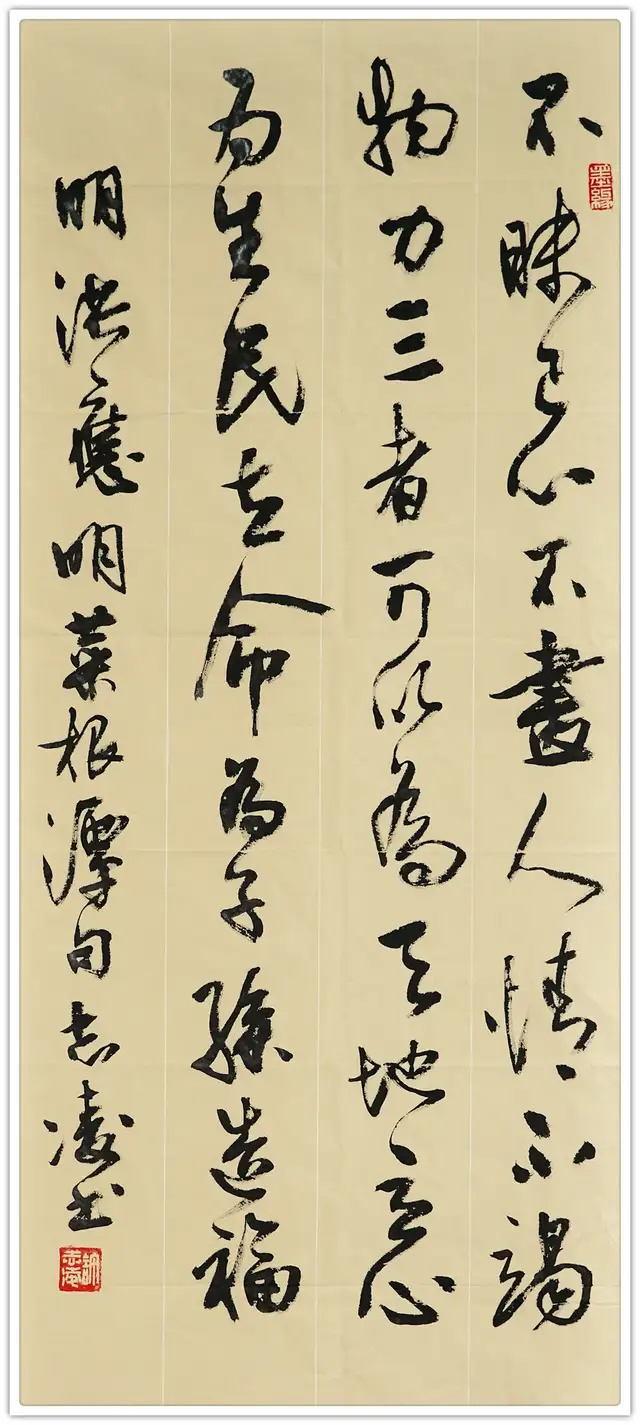 不昧己心不盡人情不竭
物力三者可以為天地立心
为生民立命為子孫造福
明洪應明菜根潭句志凌书
墨緣